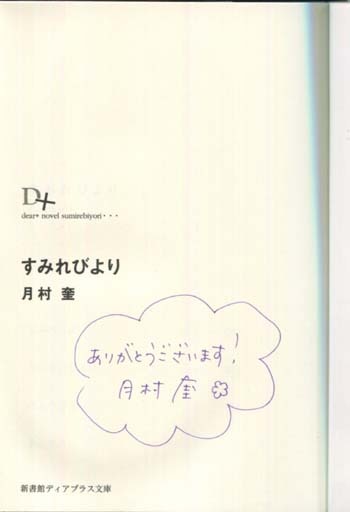 D+
dear+ novel sumirebiyori・・・
すみれびより
月村 奎
ありがとうございます!
月村 奎
新書館ディアプラス文庫